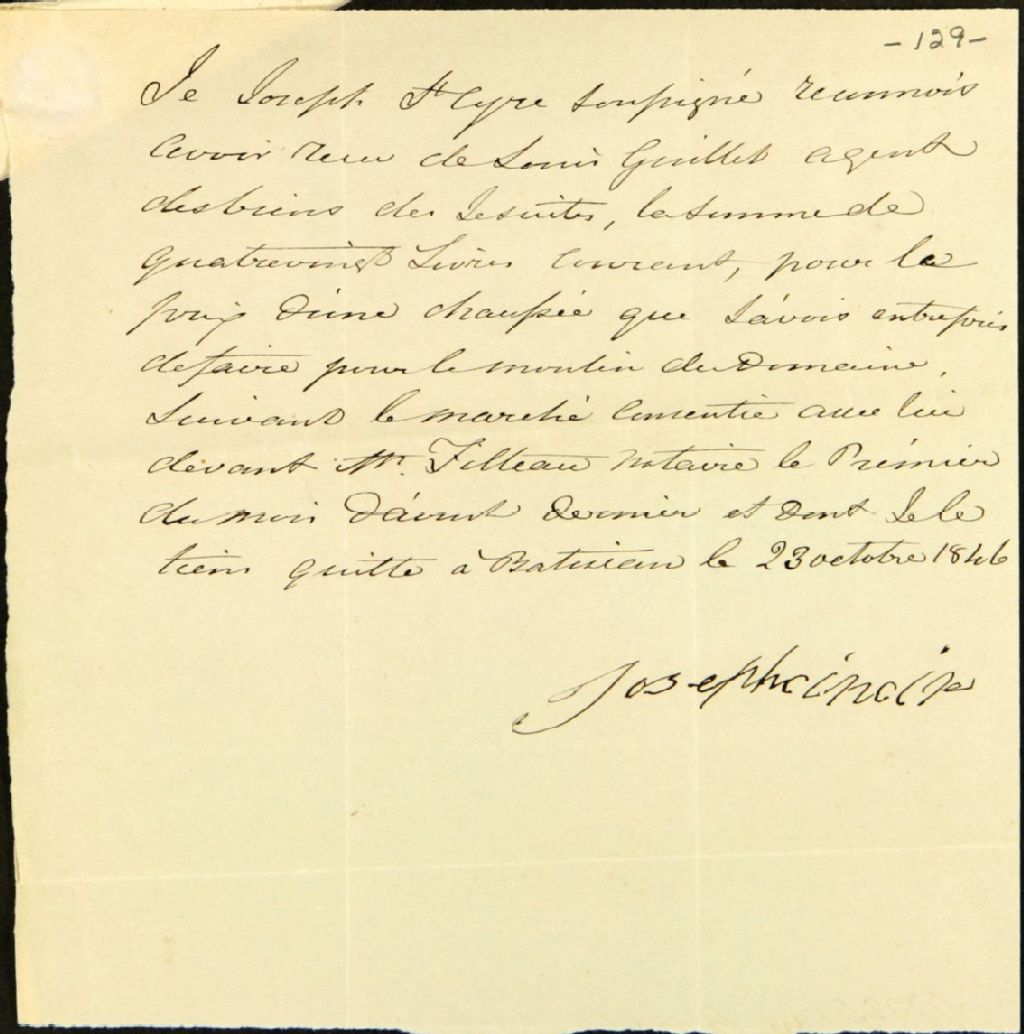 -129-
Je Joseph St Cyre soussigné reconnois
avoir recu de Louis Guillet agent
des biens des Jesuites, la somme de
quatrevingt Livres Courant, pour le
prix d'une chaussée que J'avois entrepris
de faire pour le moulin du Domaine,
suivant le marché consentie avec lui
devant Mr. Filteau notaire le Prémier
du mois d'Avout dernier et dont Je le
tiens quitte à Batiscan le 23 octobre 1846
Joseph